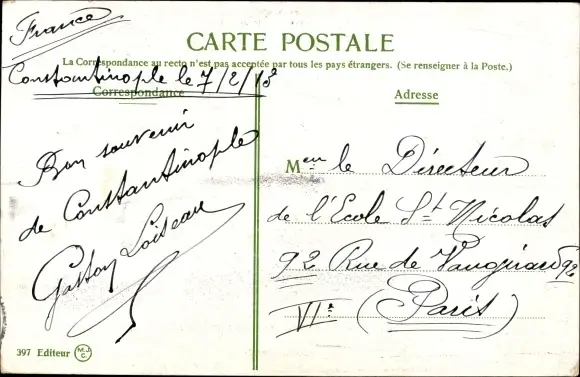 France
CARTE POSTALE
La Correspondance au recto n'est pas acceptée par tous les pays étrangers. (Se renseigner à la Poste.)
Constantinople le 7/2/
Correspondance
Adresse
Bon souvenir
de Constantinople
Gaston Loiseau
Meur le Directeur
de l'Ecole St Nicolas
92 Rue de Vaugirard 92
VIe (Paris)
397 Editeur M.J.C.